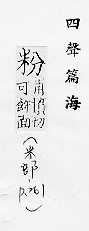 四聲篇海
粉
甫憤切
可飾面
(米部-p.761)